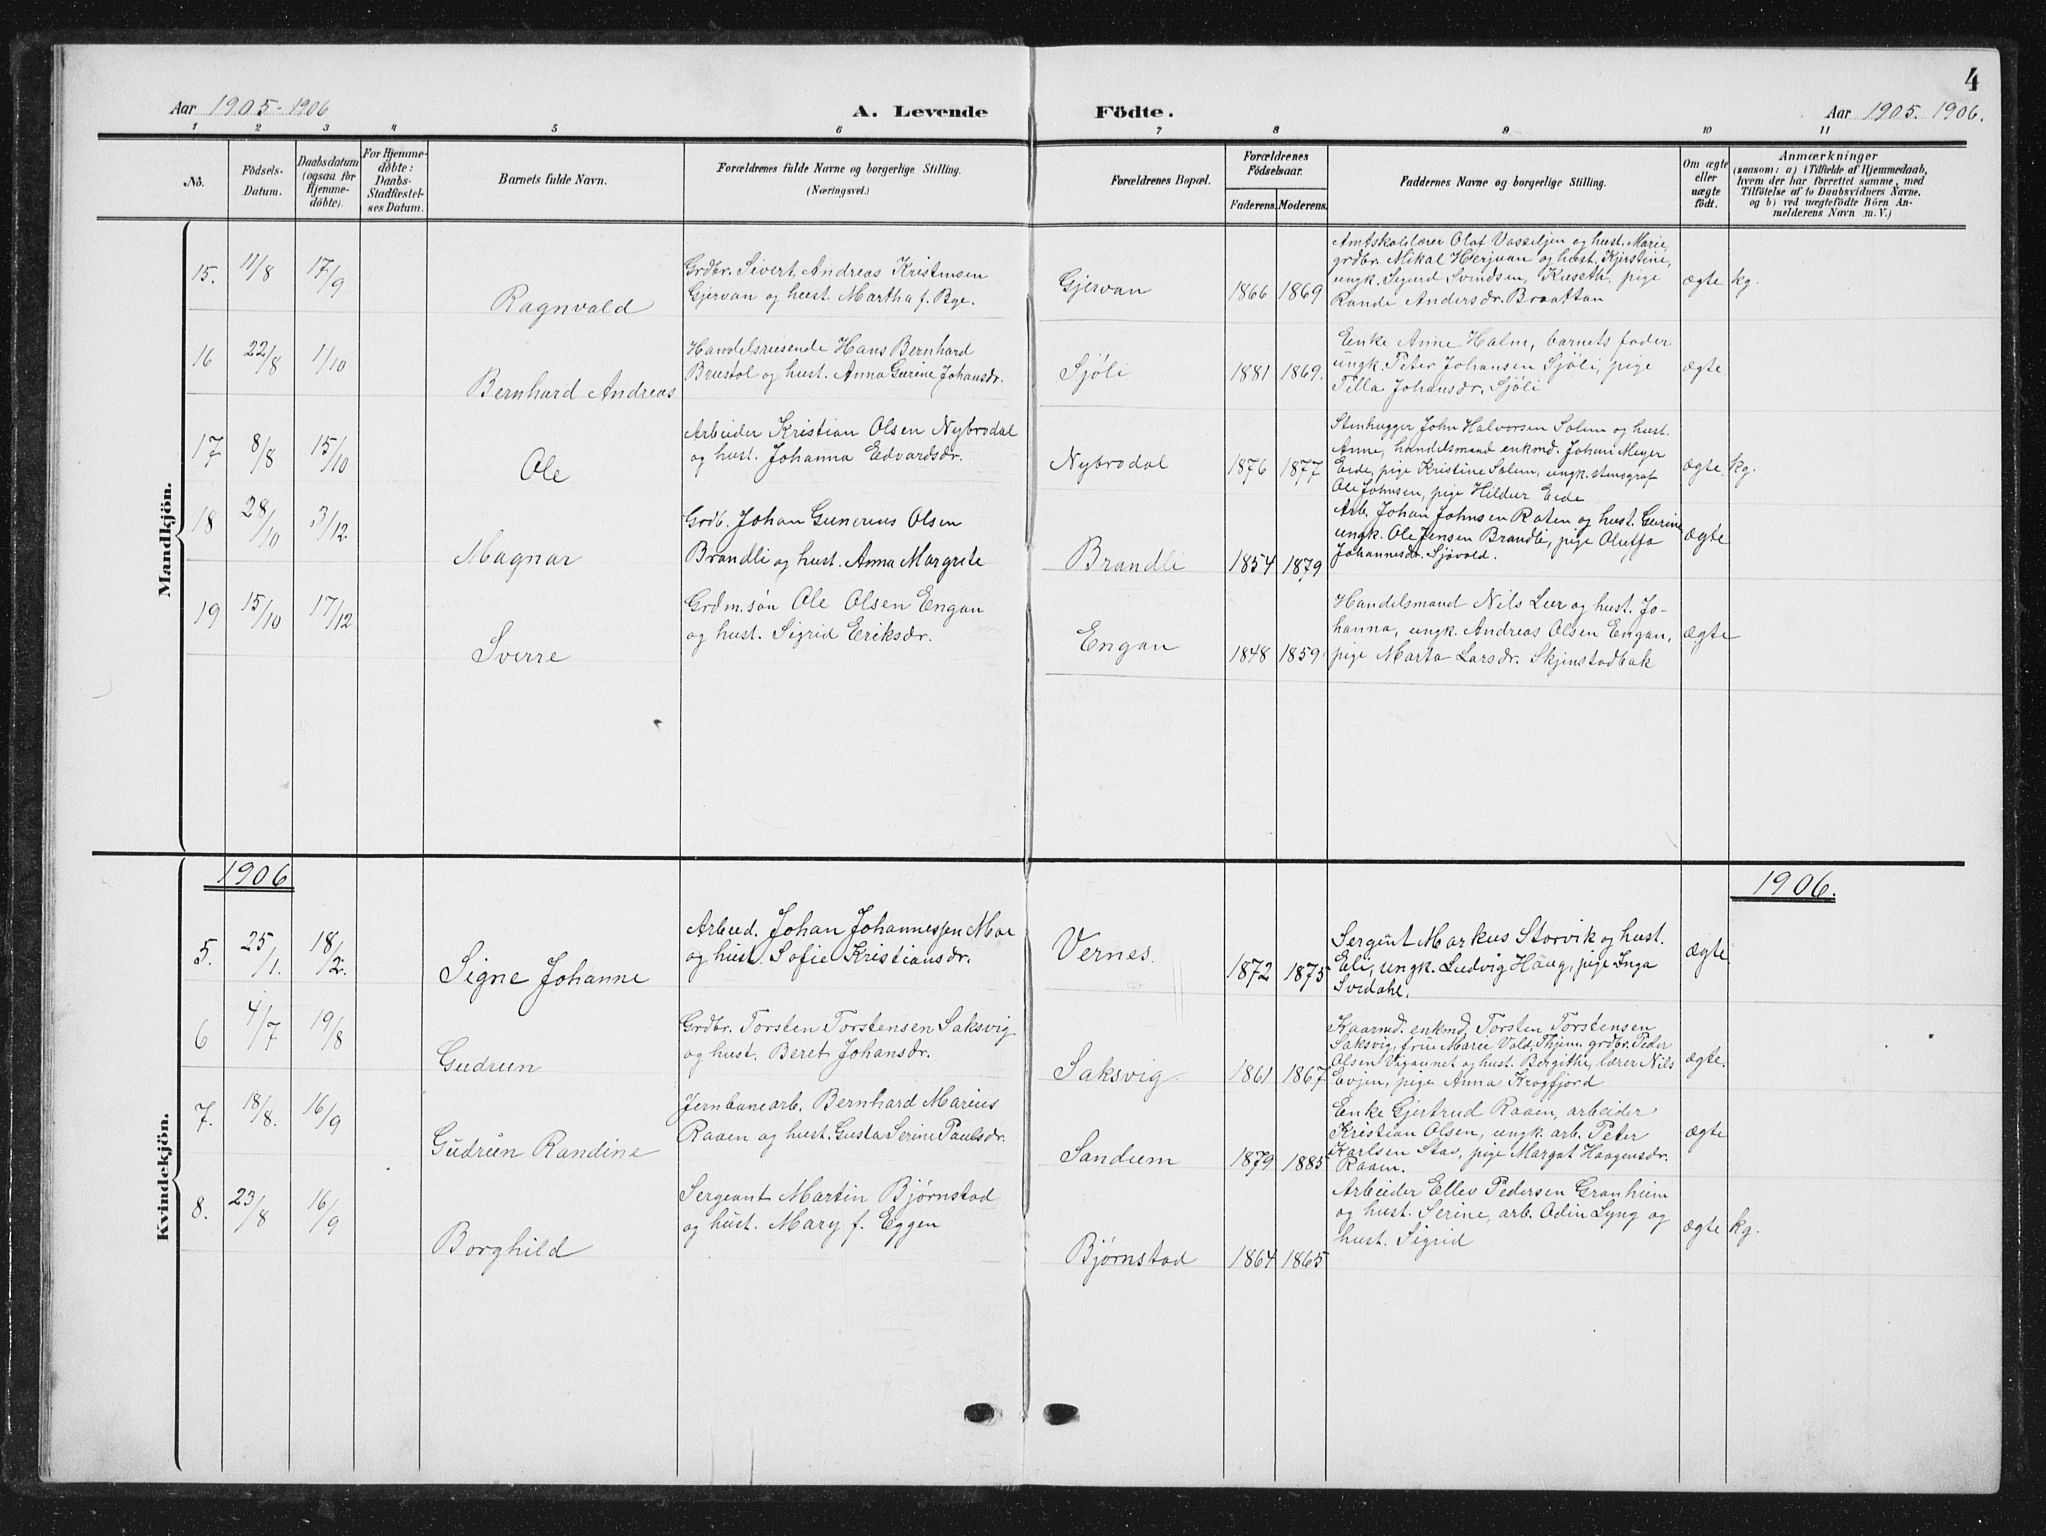 4
Aar 1905-1906
A. Levende Födte.
Aar 1905. 1906.
1 2 3 4 5 6 7 8 9 10 11
No.
Födsels-
Datum.
Daabsdatum
(ogsaa for
Hjemme-
döbte).
For Hjemme-
döbte:
Daabs-
Stadfæstel-
ses Datum.
Barnets fulde Navn.
Forældrenes fulde Navne og borgerlige Stilling.
(Næringsvei.)
Forældrenes Bopæl.
Forældrenes
Födselsaar.
Faderens. Moderens.
Faddernes Navne og borgerlige Stilling.
Om ægte
eller
uægte
födt.
Anmærkninger
(saasom: a) i Tilfælde af Hjemmedaab,
hvem der har forrettet samme, med
Tilföielse af to Daabsvidners Navne.
og b) ved uægtefödte Börn An-
melderens Navn m. V.)
Mandkjön.
15. 11/8 17/9
Ragnvald
Grdbr. Sivert Andreas Kristensen
Gjervan og hust. Martha f. Bye.
Gjervan
1866 1869
Amtskolelærer Olaf Vasseljen og hust. Marie,
grdbr. Mikal Herjuan og hust. Kjerstine,
ungk. Sigurd Svendsen Kuseth, pige
Rande Andersdr. Braattan
ægte kg.
16 22/8 1/10
Bernhard Andreas
Handelsreisende Hans Bernhard
Brustol og hust. Anna Gurine Johansdr.
Sjøli
1881 1869.
Enke Anne Halm, barnets fader
ungk. Peter Johansen Sjøli, pige
Tilla Johansdr. Sjöli
ægte
17 8/8 15/10
Ole
Arbeider Kristian Olsen Nybrodal
og hust. Johanna Edvardsdr.
Nybrodal
1876 1877
Stenhugger John Halvorsen Solem og hust.
Anne, handelsmand enkmd. Johan Meyer
Eide, pige Kristine Solem, ungk. stensgraf
Ole Johnsen, pige Hildur Eide
ægte. kg.
18 28/10 3/12.
Magnar
Grdb. Johan Gunerius Olsen
Brandli og hust. Anna Margrete
Brandli
1854 1879
Arb. Johan Johnsen Raten og hust. Gurine
ungk. Ole Jensen Brandli, pige Oluffa
Johannesdr. Sjövold.
ægte
19 15/10 17/12
Sverre
Grdm.søn Ole Olsen Engan
og hust. Sigrid Eriksdr.
Engan
1848 1859
Handelsmand Nils Lur og hust. Jo-
hanna, ungk. Andreas Olsen Engan,
pige Marta Larsdr. Skjenstadbak
ægte
Kvindekjön.
1906
1906.
5. 25/1. 18/2.
Signe Johanne
Arbeid. Johan Johannessen Moe
og hust. Sofie Kristiansdr.
Vernes.
1872 1875
Sergent Markus Storvik og hust.
Eli, ungk. Ludvig Haug, pige Inga
Svedahl.
ægte
6 4/7 19/8
Gudrun
Grdbr. Torsten Torstensen Saksvig
og hust. Beret Johansdr.
Saksvig.
1861 1867
Kaarmd. enkmd. Torsten Torstensen
Saksvig, frue Marie Vold, Thjem. grdbr. Peder
Olsen Vigaunet og hust. Bergithe, lærer Nils
Evjen, pige Anna Krogfjord
ægte.
7. 18/8. 16/9
Gudrun Randine
Jernbanearb. Bernhard Marius
Raaen og hust. Gusta Serine Paulsdr.
Sandum
1879 1885
Enke Gjertrud Raaen, arbeider
Kristian Olsen, ungk. arb. Peter
Karlsen Stav, pige Margat Haagensdr.
Raaen.
ægte
8. 23/8 16/9
Borghild
Sergeant Martin Bjørnstad
og hust. Mary f. Eggen
Bjørnstad
1864 1865
Arbeider Ellev Pedersen Granheim
og hust. Serine, arb. Odin Lyng og
hust. Sigrid
ægte kg.